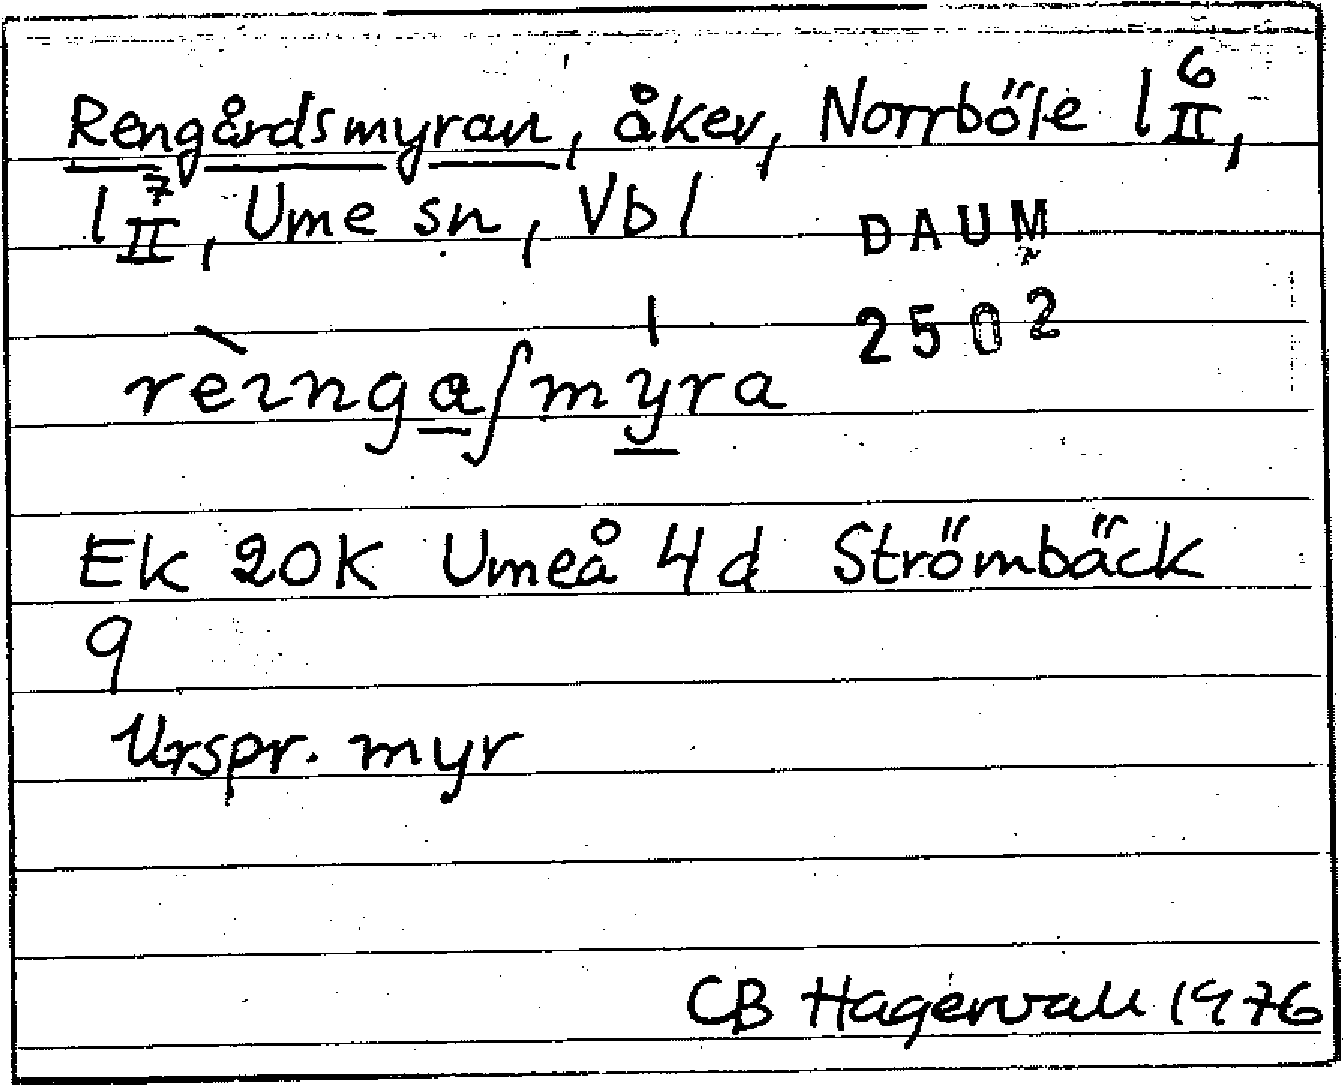 Rengårdsmyran, åker, Norrböle 1 6/II,
1 7/II, Ume sn, Vbl
DAUM
2502
rèınga∫mýra
Ek 20K Umeå 4d Strömbäck
9
Urspr. myr
CB Hagervall 1976